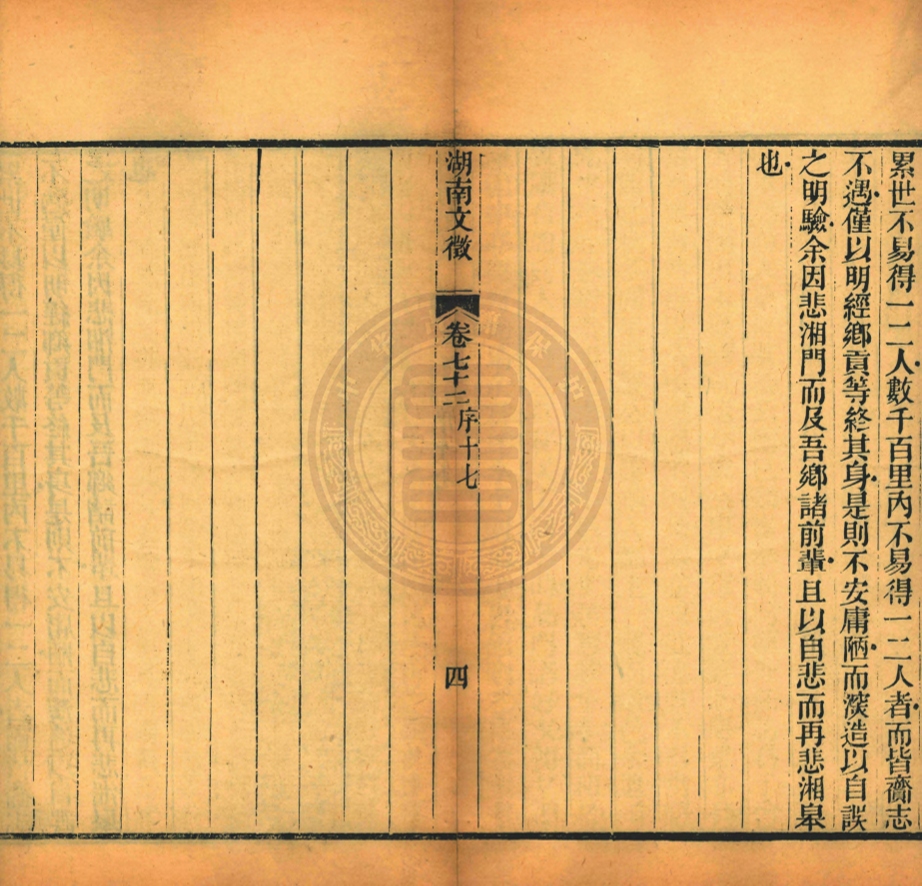 累世不易得一二人數千百里內不易得一二人者而皆齎志
不遇僅以明經鄉貢等終其身是則不安庸陋而湥造以自誤
之明驗余因悲湘門而及吾鄉諸前輩且以自悲而再悲湘皋
也
湖南文徵
卷七十二
序十七
四